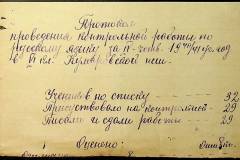 Протокол
проведения контрольной работы по
русскому языку за II четв. 1940/41 уч. год
в VI кл. нсш.
Учеников по списку — 32
Присутствовало на контрольной — 29
Писало и сдали работы — 29